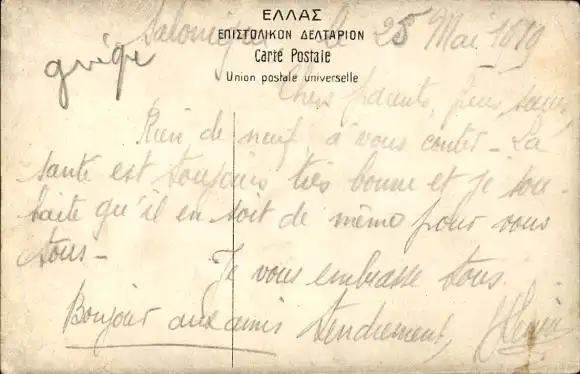 ΕΛΛΑΣ
ΕΠΙΣΤΟΛΙΚΟΝ ΔΕΛΤΑΡΙΟΝ
Carte Postale
Union postale universelle
Salonique le 25 Mai 1919
Chers parents,
Rien de neuf à vous conter - La
santé est toujours très bonne et je sou-
haite qu'il en soit de même pour vous
tous -
Je vous embrasse tous
Bonjour aux amis tendrement,